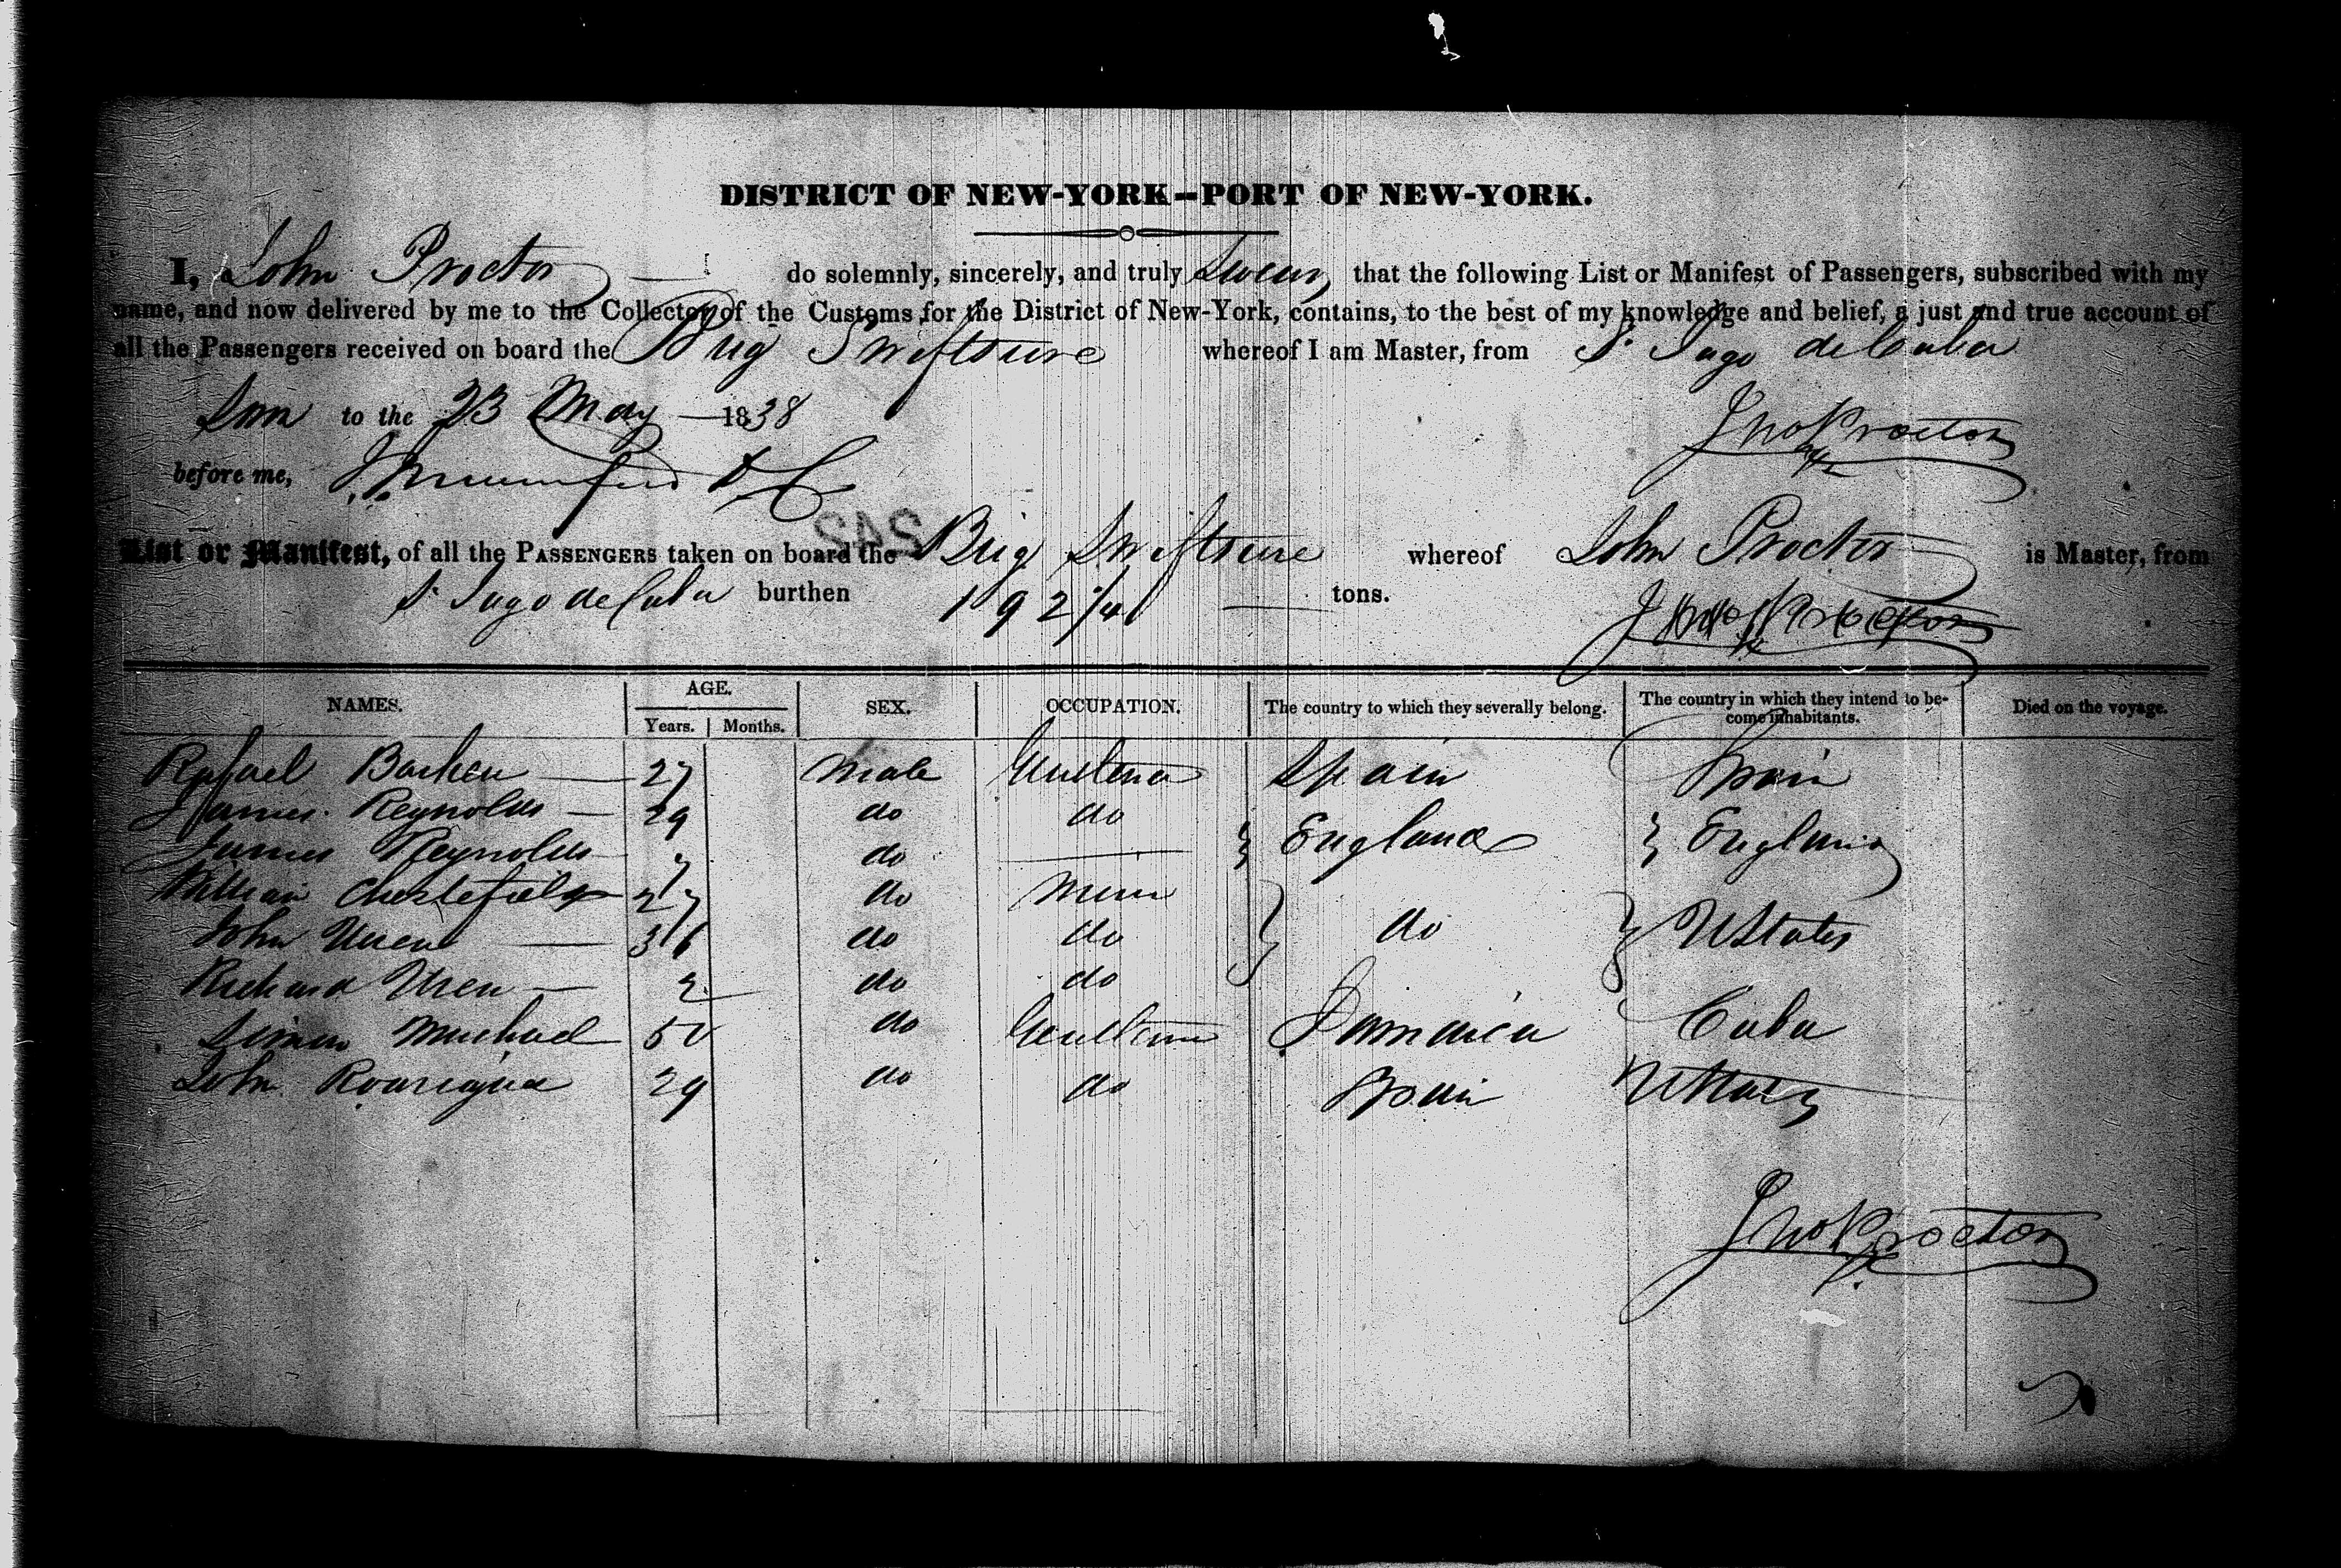 DISTRICT OF NEW-YORK—PORT OF NEW-YORK.
I, John Proctor do solemnly, sincerely, and truly Swear, that the following List or Manifest of Passengers, subscribed with my
name, and now delivered by me to the Collector of the Customs for the District of New-York, contains, to the best of my knowledge and belief, a just and true account of
all the Passengers received on board the Brig Swiftsure whereof I am Master, from St. Iago de Cuba
to the 23 May 1838
Jno Proctor
before me,
242
List or Manifest, of all the PASSENGERS taken on board the Brig Swiftsure whereof John Proctor is Master, from
St. Iago de Cuba burthen 192 tons.
Jno Proctor
NAMES. AGE. SEX. OCCUPATION. The country to which they severally belong. The country in which they intend to become inhabitants. Died on the voyage.
Years. Months.
Rafael 27 Male Spain Spain
James Reynolds 29 do do
James Reynolds 7 do } England } England
William Chesterfield 27 do
John Uren 31 do do } do } UStates
Richard Uren 2 do do
Simon Michael 50 do Jamaica Cuba
John 29 do do Spain UStates
Jno Proctor